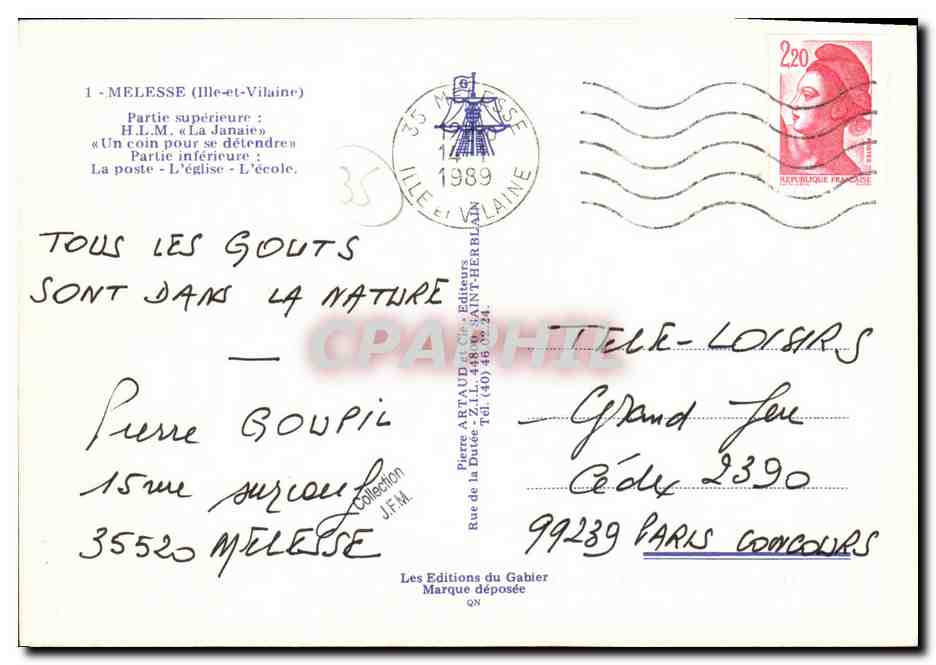 1 - MELESSE (Ille-et-Vilaine)
Partie supérieure :
H.L.M. «La Janaie»
«Un coin pour se détendre»
Partie inférieure :
La poste - L'église - L'école.
35
35 MELESSE
1989
ILLE et VILAINE
2,20
REPUBLIQUE FRANÇAISE
TOUS LES GOUTS
SONT DANS LA NATURE
Pierre GOUPIL
15 rue surcouf
35520 MELESSE
Collection
J.F.M.
CPAPHIL
Pierre ARTAUD et Cie - Editeurs
Rue de la Dutée - Z.I.L. 44800 SAINT-HERBLAIN
Tél. (40) 46 02 24.
TELE-LOISIRS
Grand Jeu
Cédex 2390
99239 PARIS CONCOURS
Les Editions du Gabier
Marque déposée
QN